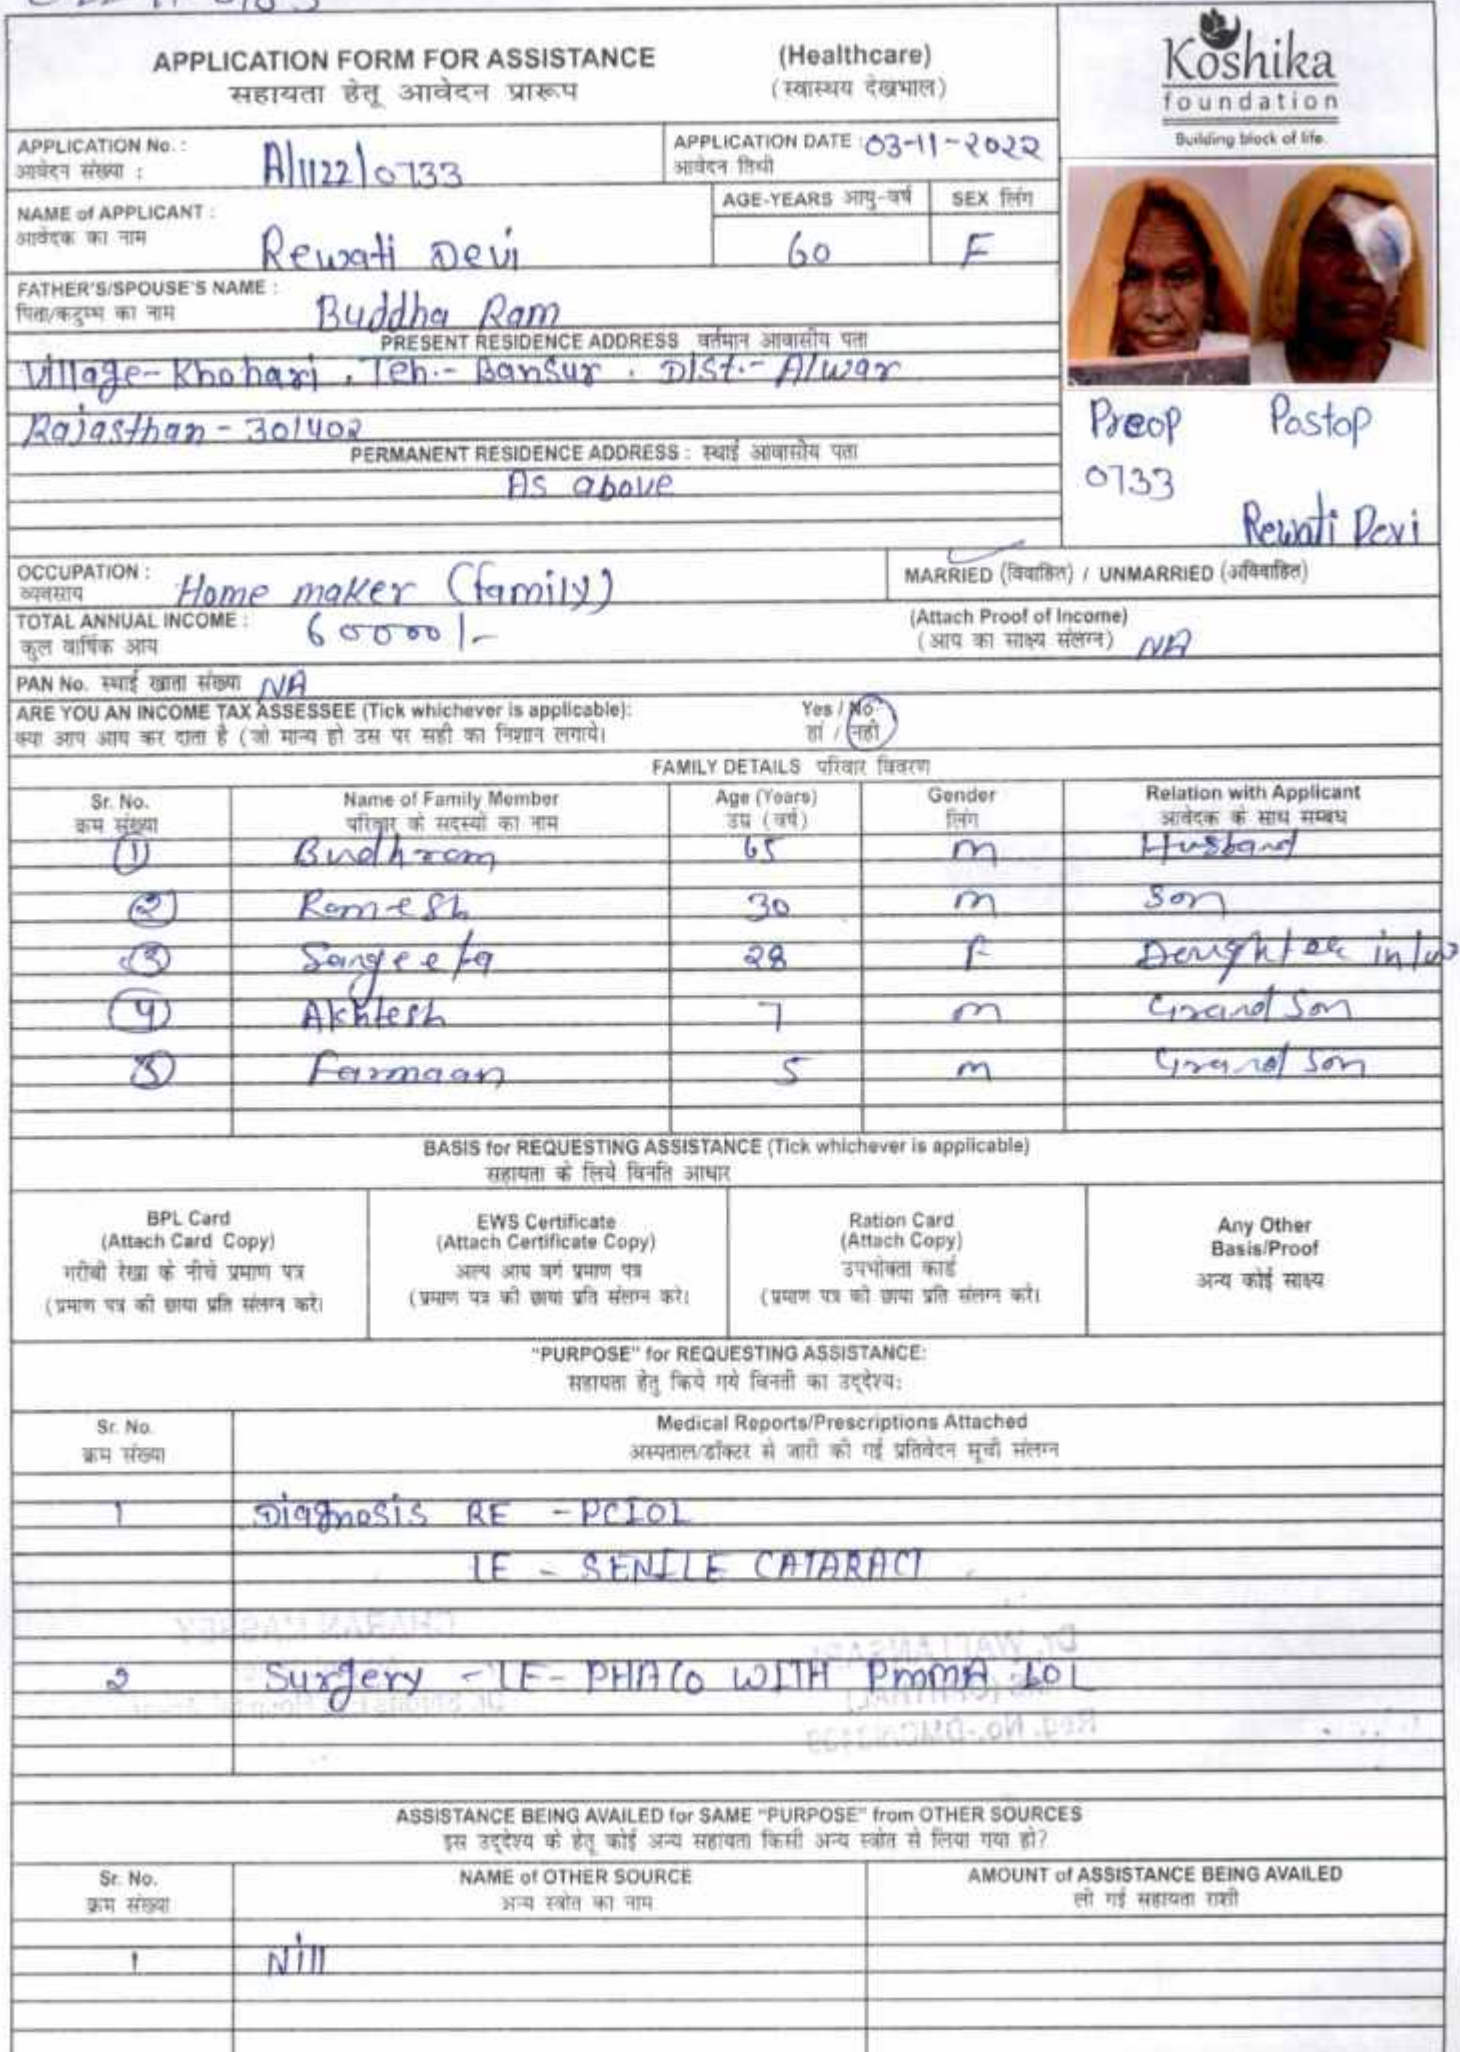 APPLICATION FORM FOR ASSISTANCE (Healthcare)
सहायता हेतू आवेदन प्रारूप (स्वास्थय देखभाल)
Koshika
foundation
Building block of life.
APPLICATION No. : A/1122/0733
आवेदन संख्या :
APPLICATION DATE : 03-11-2022
आवेदन तिथी
NAME of APPLICANT : Rewati Devi
आवेदक का नाम
AGE-YEARS आयु-वर्ष 60
SEX लिंग F
FATHER'S/SPOUSE'S NAME : Buddha Ram
पिता/कटुम्भ का नाम
PRESENT RESIDENCE ADDRESS वर्तमान आवासीय पता
Village-Khohari, Teh.- Bansur, Dist.- Alwar
Rajasthan - 301402
PERMANENT RESIDENCE ADDRESS : स्थाई आवासीय पता
As above
Preop Postop
0733
Rewati Devi
OCCUPATION : Home maker (family)
व्यवसाय
MARRIED (विवाहित) / UNMARRIED (अविवाहित)
TOTAL ANNUAL INCOME : 60000/-
कुल वार्षिक आय
(Attach Proof of Income)
(आय का साक्ष्य संलग्न) NA
PAN No. स्थाई खाता संख्या NA
ARE YOU AN INCOME TAX ASSESSEE (Tick whichever is applicable): Yes / No
क्या आप आय कर दाता है (जो मान्य हो उस पर सही का निशान लगाये। हां / नही
FAMILY DETAILS परिवार विवरण
Sr. No. Name of Family Member Age (Years) Gender Relation with Applicant
क्रम संख्या परिवार के सदस्यों का नाम उम्र (वर्ष) लिंग आवेदक के साथ सम्बध
1 Budhram 65 m Husband
2 Ramesh 30 m Son
3 Sangeeta 28 F Daughter in law
4 Akhlesh 7 m Grand Son
5 Farmaan 5 m Grand Son
BASIS for REQUESTING ASSISTANCE (Tick whichever is applicable)
सहायता के लिये विनति आधार
BPL Card
(Attach Card Copy)
गरीबी रेखा के नीचे प्रमाण पत्र
(प्रमाण पत्र की छाया प्रति संलग्न करे।
EWS Certificate
(Attach Certificate Copy)
अल्प आय वर्ग प्रमाण पत्र
(प्रमाण पत्र की छाया प्रति संलग्न करे।
Ration Card
(Attach Copy)
उपभोक्ता कार्ड
(प्रमाण पत्र की छाया प्रति संलग्न करे।
Any Other
Basis/Proof
अन्य कोई साक्ष्य
"PURPOSE" for REQUESTING ASSISTANCE:
सहायता हेतु किये गये विनती का उद्देश्य:
Sr. No. Medical Reports/Prescriptions Attached
क्रम संख्या अस्पताल/डॉक्टर से जारी की गई प्रतिवेदन सूची संलग्न
1 Diagnosis RE - PCIOL
LE - SENILE CATARACT
2 Surgery - LE - PHACO WITH PMMA IOL
ASSISTANCE BEING AVAILED for SAME "PURPOSE" from OTHER SOURCES
इस उद्देश्य के हेतू कोई अन्य सहायता किसी अन्य स्त्रोत से लिया गया हो?
Sr. No. NAME of OTHER SOURCE AMOUNT of ASSISTANCE BEING AVAILED
क्रम संख्या अन्य स्त्रोत का नाम ली गई सहायता राशी
1 Nill